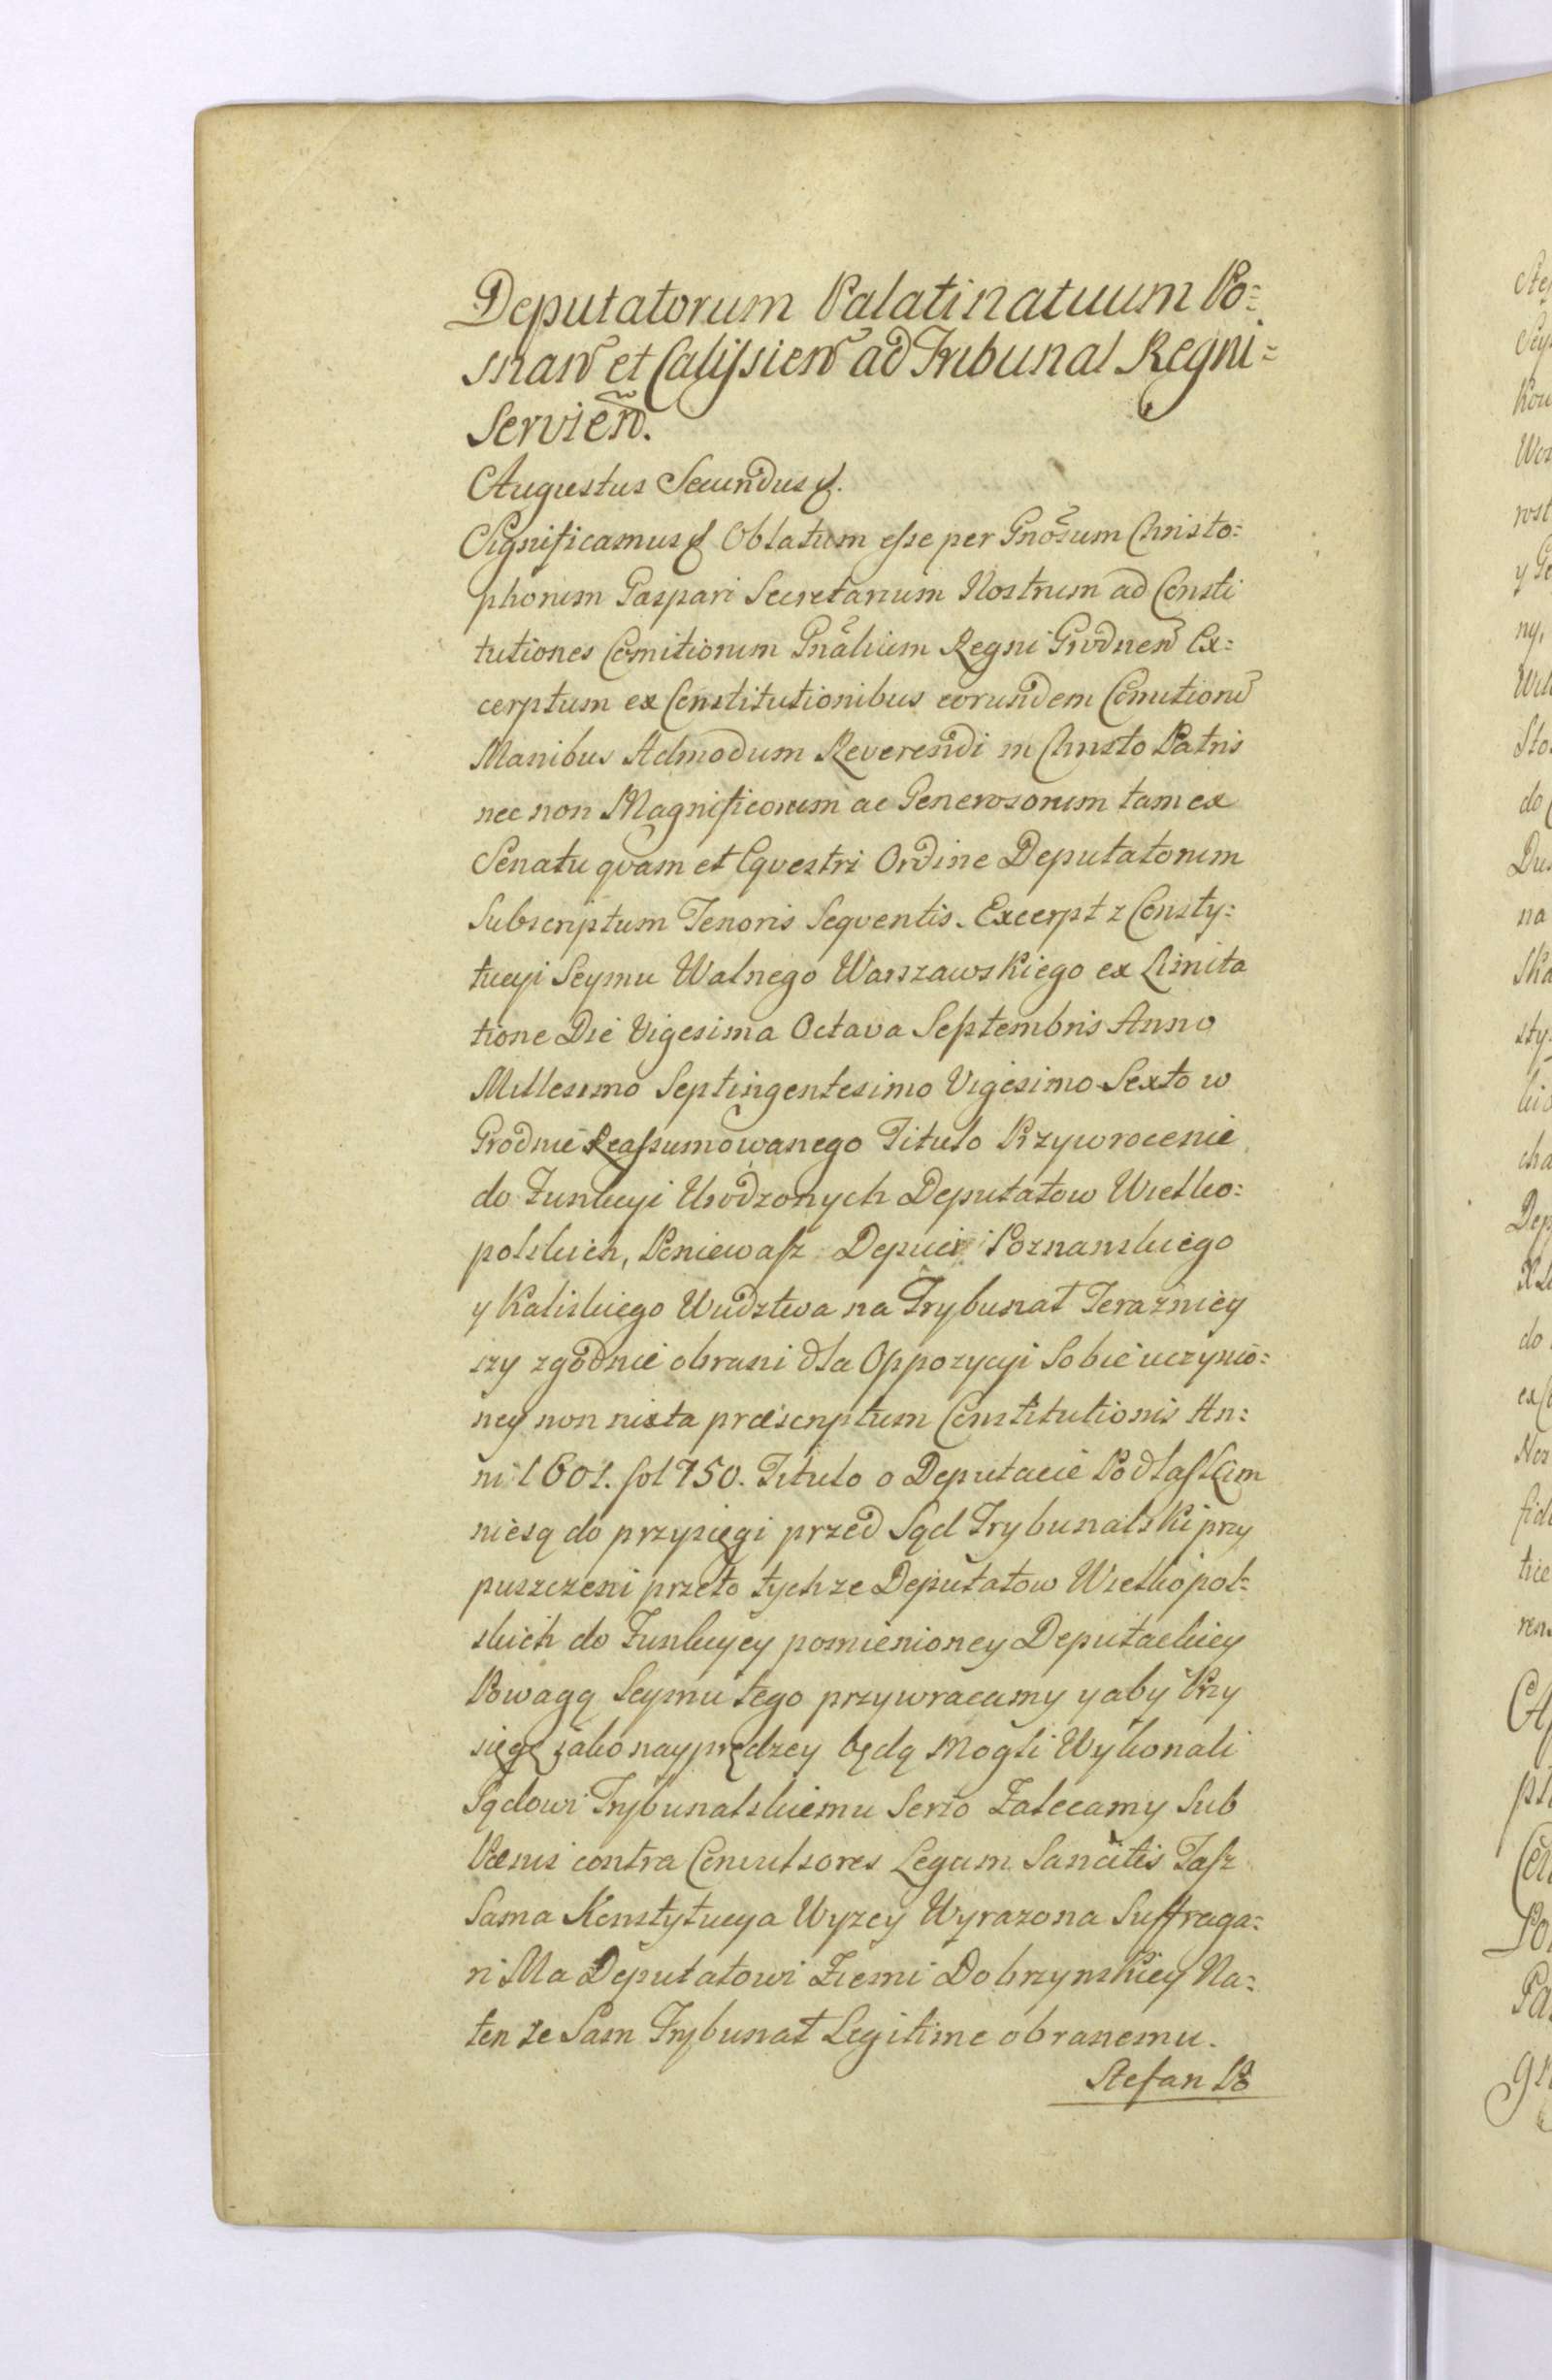 Deputatorum Palatinatuum Po=
snan et Calissien ad Tribunal Regni=
Servien.
Augustus Secundus &.
Significamus & Oblatum esse per Gnosum Christo=
phorum Gaspari Secretarium Nostrum ad Consti
tutiones Comitiorum Gnalium Regni Grodnen Ex=
cerptum ex Constitutionibus eorundem Comitioru
Manibus Admodum Reverendi in Christo Patris
nec non Magnificorum ac Generosorum tam ex
Senatu qvam et Eqvestri Ordine Deputatorum
Subscriptum Tenoris Seqventis. Excerpt z Consty=
tucyi Seymu Walnego Warszawskiego ex Limita
tione Die Vigesima Octava Septembris Anno
Millesimo Septingentesimo Vigesimo Sexto w
Grodnie Reassumowanego Titulo Przywrocenie
do Funkcyi Urodzonych Deputatow Wielko=
polskich, Poniewasz Depuci Poznanskiego
y Kaliskiego Wudztwa na Trybunał Terazniey
szy zgodnie obrani dla Oppozycyi Sobie uczynio=
ney non iuxta præscriptum Constitutionis An=
ni 1601. fol 750. Titulo o Deputacie Podlaskim
niesą do przysięgi przed Sąd Trybunalski przy
puszczeni przeto tychze Deputatow Wielkopol=
skich do Funkcyey pomienioney Deputackiey
Powagą Seymu tego przywracamy y aby Przy
sięgę jako nayprędzey będą Mogli Wykonali
Sądowi Trybunalskiemu Serio Zalecamy Sub
Pænis contra Convulsores Legum Sancitis Tasz
Sama Konstytucya Wyzey Wyrazona Suffraga=
ri Ma Deputatowi Ziemi Dobrzynskiey Na=
ten ze Sam Trybunał Legitime obranemu.
Stefan Po